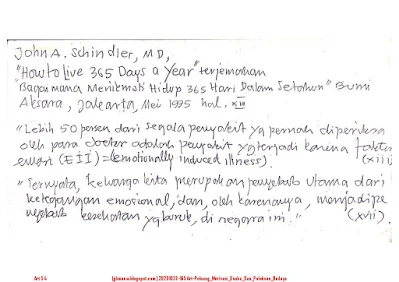 John A. Schindler, MD,
"How to Live 365 Days a Year" terjemahan
"Bagaimana Menikmati Hidup 365 Hari Dalam Setahun" Bumi
Aksara, Jakarta, Mei 1995 hal. XIII
"Lebih 50 persen dari segala penyakit yg pernah diperiksa
oleh para dokter adalah penyakit yg terjadi karena faktor
emosi (EII) = (emotionally induced illness). (xiii)
"Ternyata, keluarga kita merupakan penyebab utama dari
ketegangan emosional, dan, oleh karenanya, menjadi pe
nyebab kesehatan yg buruk, di negara ini." (xvii).
Art 54